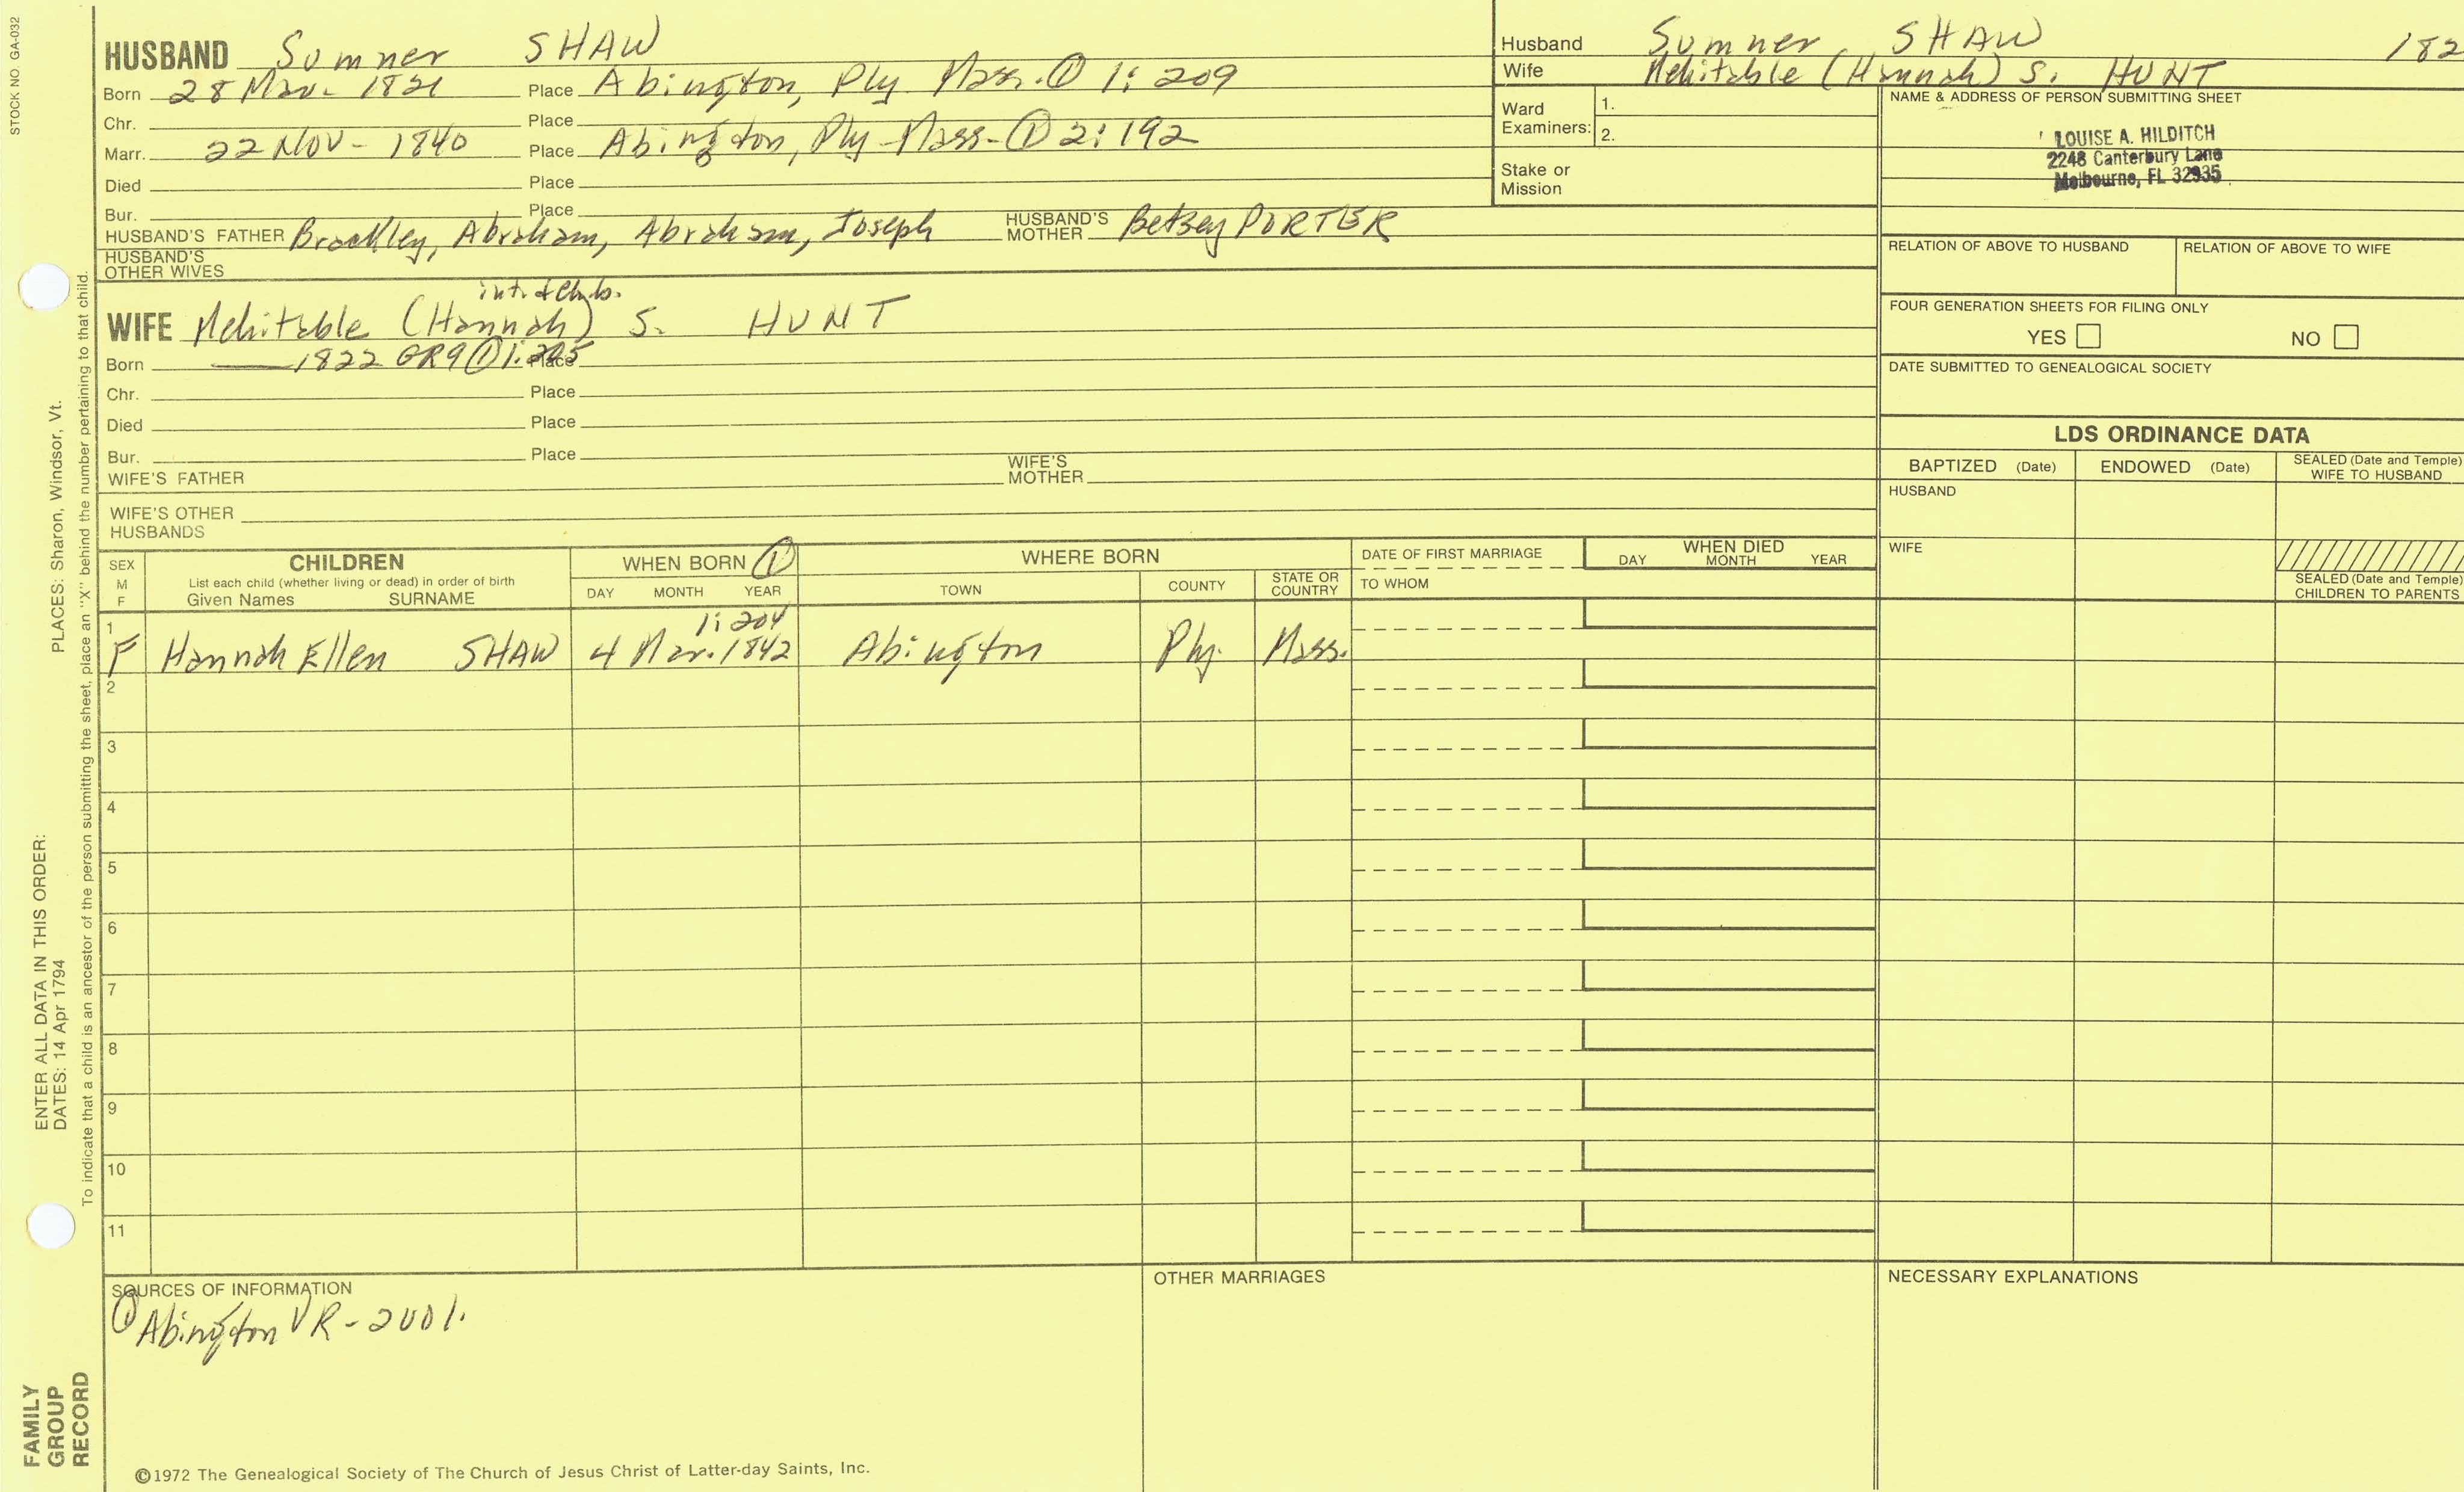 STOCK NO. GA-032
HUSBAND Sumner SHAW
Born 28 Mar. 1821 Place Abington, Ply. Mass. ① 1: 209
Chr. Place
Marr. 22 Nov - 1840 Place Abington, Ply Mass - ① 2: 192
Died Place
Bur. Place
HUSBAND'S FATHER Brackley, Abraham, Abraham, Joseph HUSBAND'S MOTHER Betsey PORTER
HUSBAND'S
OTHER WIVES
Husband Sumner SHAW 182
Wife Mehitable (Hannah) S. HUNT
Ward
Examiners: 1.
2.
Stake or
Mission
NAME & ADDRESS OF PERSON SUBMITTING SHEET
LOUISE A. HILDITCH
2248 Canterbury Lane
Melbourne, FL 32935
RELATION OF ABOVE TO HUSBAND RELATION OF ABOVE TO WIFE
FOUR GENERATION SHEETS FOR FILING ONLY
YES NO
DATE SUBMITTED TO GENEALOGICAL SOCIETY
int. & ch. b.
WIFE Mehitable (Hannah) S. HUNT
Born —— 1822 GR9 ① 1: Place
Chr. Place
Died Place
Bur. Place
WIFE'S FATHER WIFE'S MOTHER
WIFE'S OTHER
HUSBANDS
LDS ORDINANCE DATA
BAPTIZED (Date) ENDOWED (Date) SEALED (Date and Temple)
WIFE TO HUSBAND
HUSBAND
WIFE
SEALED (Date and Temple)
CHILDREN TO PARENTS
SEX
M
F
CHILDREN
List each child (whether living or dead) in order of birth
Given Names SURNAME
WHEN BORN ①
DAY MONTH YEAR
WHERE BORN
TOWN COUNTY STATE OR COUNTRY
DATE OF FIRST MARRIAGE
TO WHOM
WHEN DIED
DAY MONTH YEAR
1 1: 204
F Hannah Ellen SHAW 4 Mar. 1842 Abington Ply. Mass.
2
3
4
5
6
7
8
9
10
11
SOURCES OF INFORMATION
① Abington VR - 2 vol.
OTHER MARRIAGES
NECESSARY EXPLANATIONS
©1972 The Genealogical Society of The Church of Jesus Christ of Latter-day Saints, Inc.
ENTER ALL DATA IN THIS ORDER:
DATES: 14 Apr 1794
PLACES: Sharon, Windsor, Vt.
To indicate that a child is an ancestor of the person submitting the sheet, place an "X" behind the number pertaining to that child.
FAMILY
GROUP
RECORD